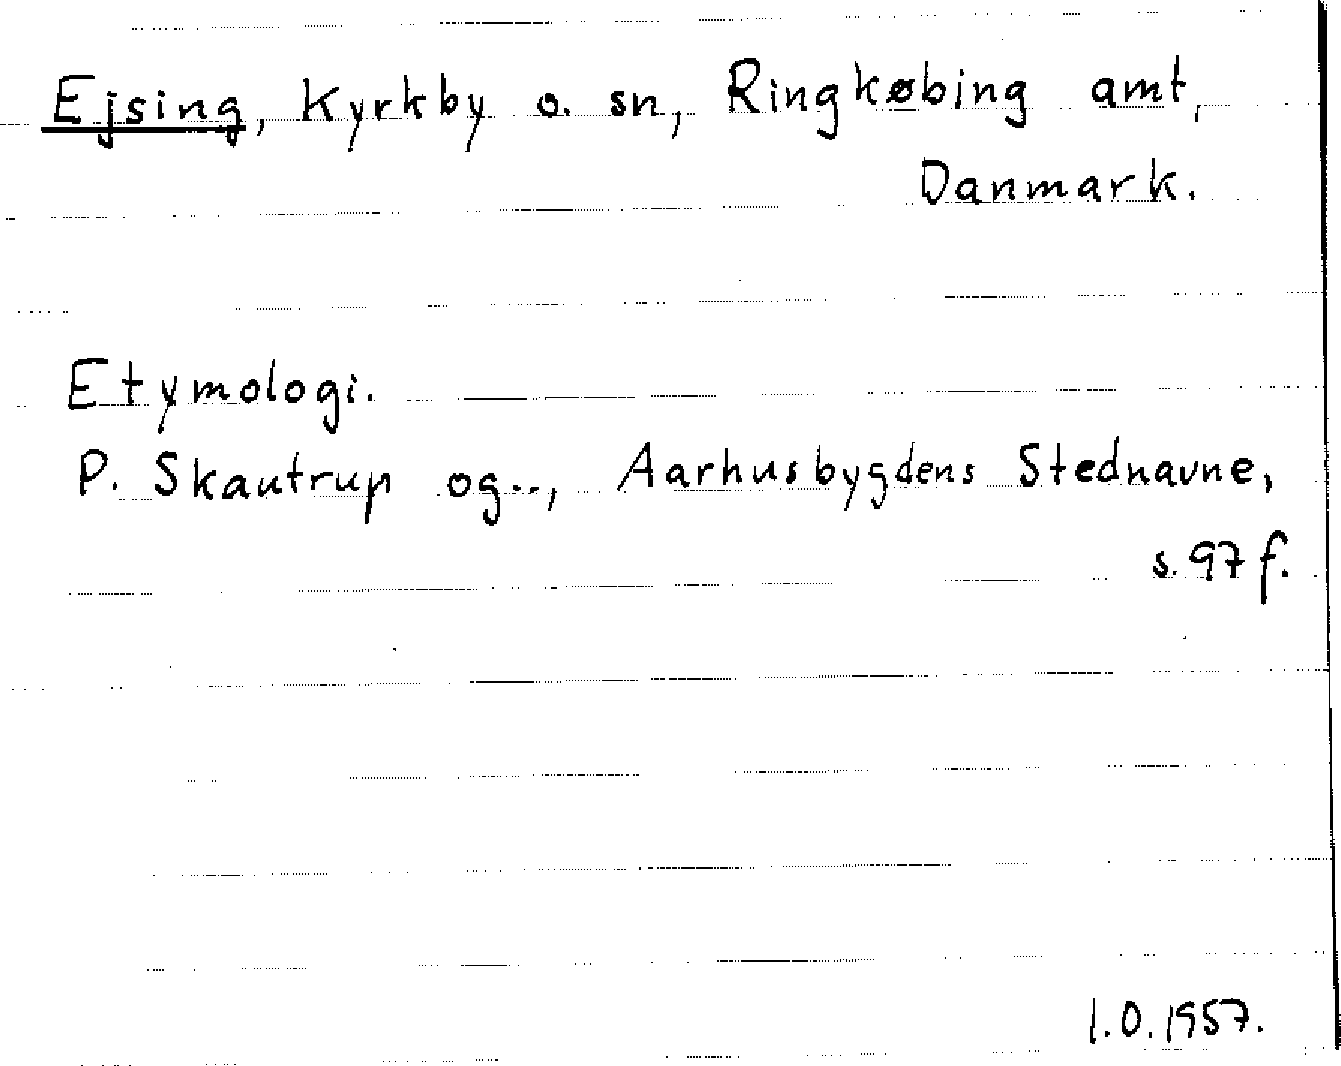 Ejsing, Kyrkby o. sn, Ringkøbing amt,
Danmark.
Etymologi.
P. Skautrup og.., Aarhusbygdens Stednavne,
s. 97 f.
I.O. 1957.